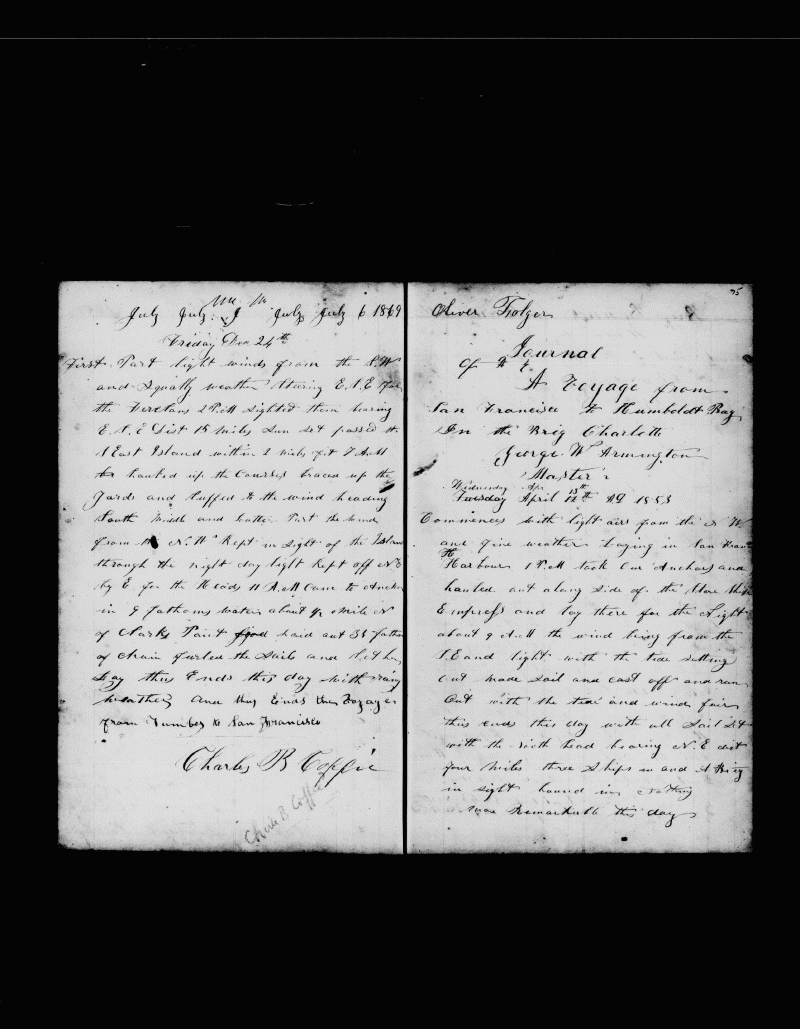 July July July July 6 1869
Friday Dec 24th
First Part light winds from the S.W
and Squally weather Stearing E.N.E for
the 2 P.M Sighted them bearing
E.N.E Dist 15 Miles Sun Set passed the
East Island within 2 miles of it 7 A.M
hauled up the Courses braced up the
Yards and luffed to the wind heading
South Middle and Latter Part the wind
from the N.W Kept in Sight of the Island
through the night day light Kept off N.E
by E for the Heads 11 A.M Came to Anchor
in 9 fathoms water about ½ Mile N
of Clarks Point haid out 35 fathom
of Chain furled the Sails and
Lay thus Ends this day with rainy
weather and thus Ends the Voyage
from Tumbes to San Francisco
Charles B Coffin
Charles B Coffin
75
Oliver Folger
Journal
Of
A Voyage from
San Francisco to Humboldt Bay
In the Brig Charlotte
George W Armington
Master
Wednesday Apr 13th
Tuesday April 12th 1853
Commences with light airs from the N W
and fine weather Laying in San Fran
Harbour 1 P.M took Our Anchors and
hauled out along Side of the Store Ship
Empress and lay there for the Night
about 9 A.M the wind being from the
N.E and light with the tide setting
Out made Sail and cast off and ran
Out with the tide and wind fair
this ends this day with all Sail Set
with the North head bearing N.E dist
four Miles three Ships in and A Brig
in sight bound in Nothing
more Remarkable this day